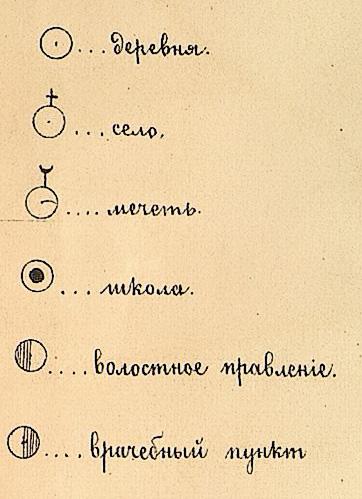 ... деревня.
... село,
.... мечеть.
... школа.
.... волостное правленіе.
.... врачебный пунктъ